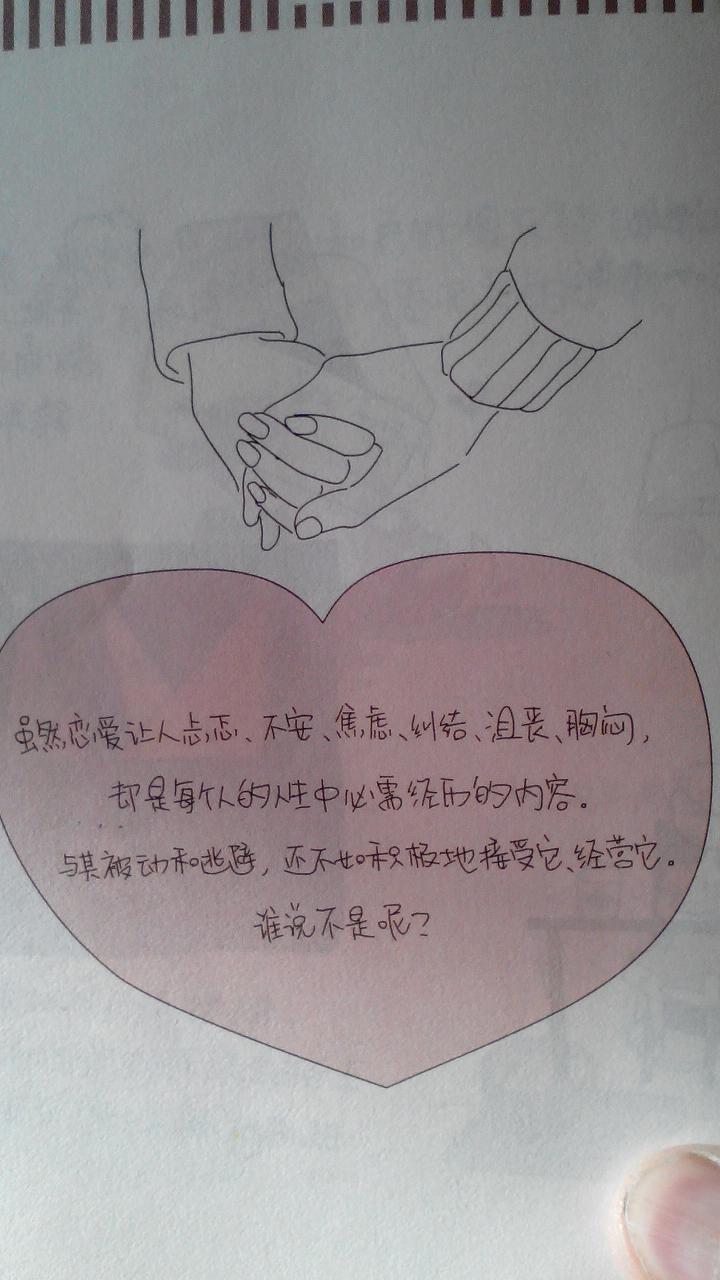 虽然恋爱让人忐忑、不安、焦虑、纠结、沮丧、胸闷，
却是每个人的人生中必需经历的内容。
与其被动和逃避，还不如积极地接受它、经营它。
谁说不是呢？